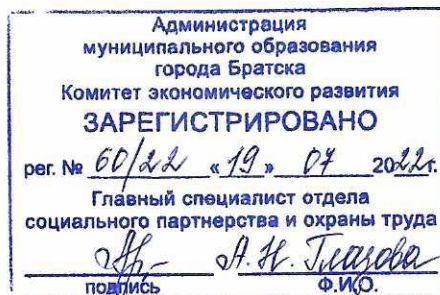 Администрация
муниципального образования
города Братска
Комитет экономического развития
ЗАРЕГИСТРИРОВАНО
рег. № 60/22 «19» 07 2022г.
Главный специалист отдела
социального партнерства и охраны труда
А. Н. Глазова
подпись Ф.И.О.